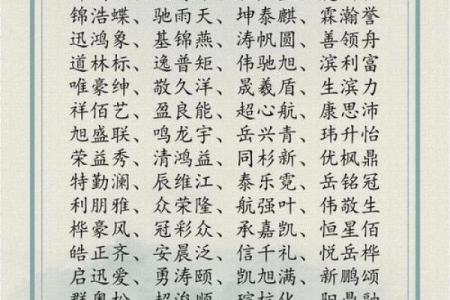 锦浩蝶、驰雨天、坤泰麒、霖瀚誉
迅鸿象、基锦燕、涛帆圆、善领舟
道林标、逸普矩、伟驰旭、滨利富
唯豪绅、敬久洋、晟羲盾、生滨力
祥佰艺、盈良能、超心航、康思沛
旭盛联、鸣龙宇、岳兴青、玮升怡
荣益秀、清鸿益、同杉新、优枫鼎
特勤澜、辰维江、泰乐霓、岳铭冠
利朋雅、众荣隆、航强叶、伟敬生
桦豪风、冠彩众、承嘉凯、恒星佰
皓正齐、安晨泛、信千礼、悦岳桦
启迅爱、勇涛颐、凯旭满、新鹏颂